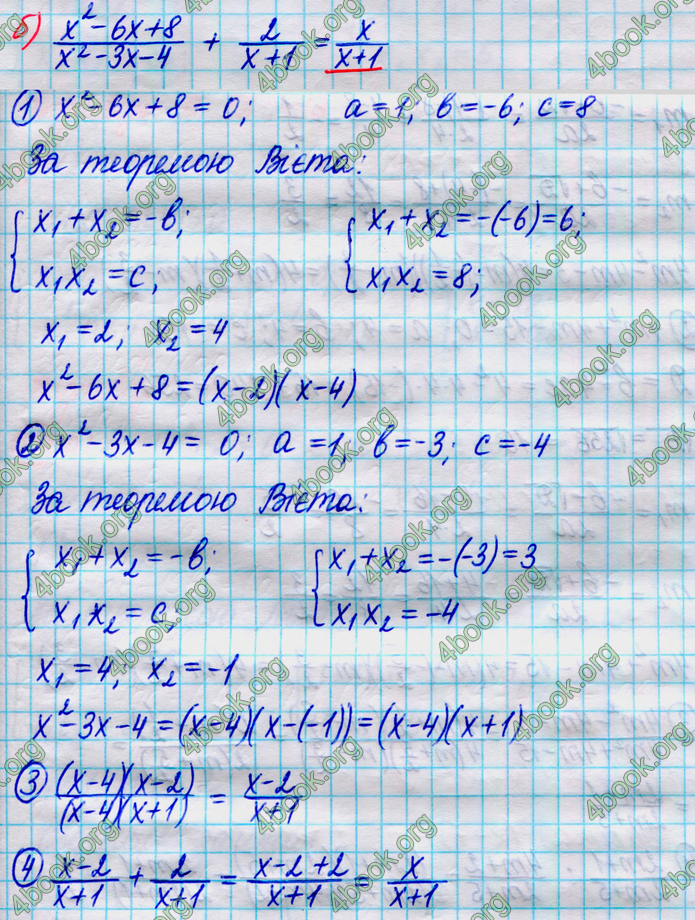 б) (x²-6x+8)/(x²-3x-4) + 2/(x+1) = x/(x+1)
① x²-6x+8=0; a=1; в=-6; c=8
За теоремою Вієта:
{ x₁+x₂=-в; { x₁+x₂=-(-6)=6;
x₁x₂=c; x₁x₂=8;
x₁=2; x₂=4
x²-6x+8=(x-2)(x-4)
② x²-3x-4=0; a=1; в=-3; c=-4
За теоремою Вієта:
{ x₁+x₂=-в; { x₁+x₂=-(-3)=3
x₁x₂=c; x₁x₂=-4
x₁=4; x₂=-1
x²-3x-4=(x-4)(x-(-1))=(x-4)(x+1)
③ ((x-4)(x-2))/((x-4)(x+1)) = (x-2)/(x+1)
④ (x-2)/(x+1) + 2/(x+1) = (x-2+2)/(x+1) = x/(x+1)
4book.org